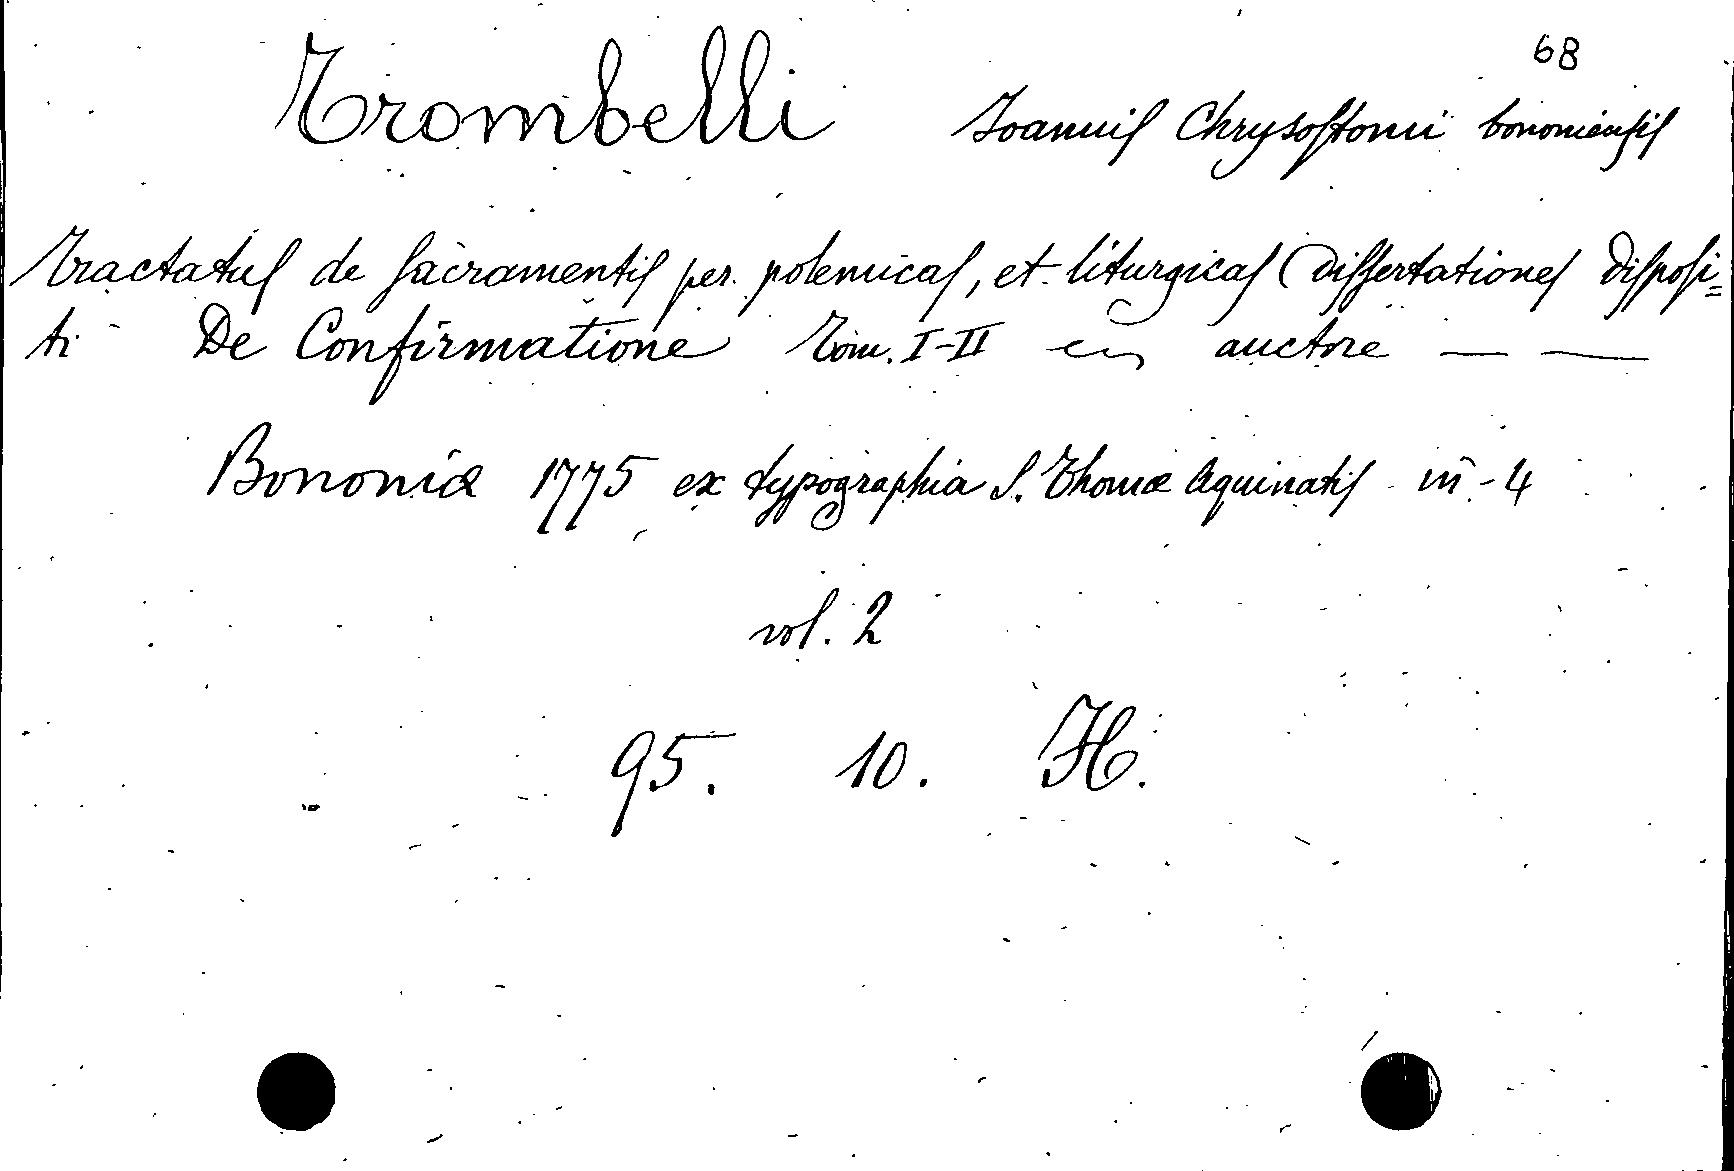 68
Trombelli Joannis Chrysostomi bononiensis
Tractatus de sacramentis per polemicas, et liturgicas Dissertationes disposi=
ti De Confirmatione Tom. I-II auctore — —
Bononiæ 1775 ex typographia S. Thomæ Aquinatis in-4
vol. 2
95. 10. H.